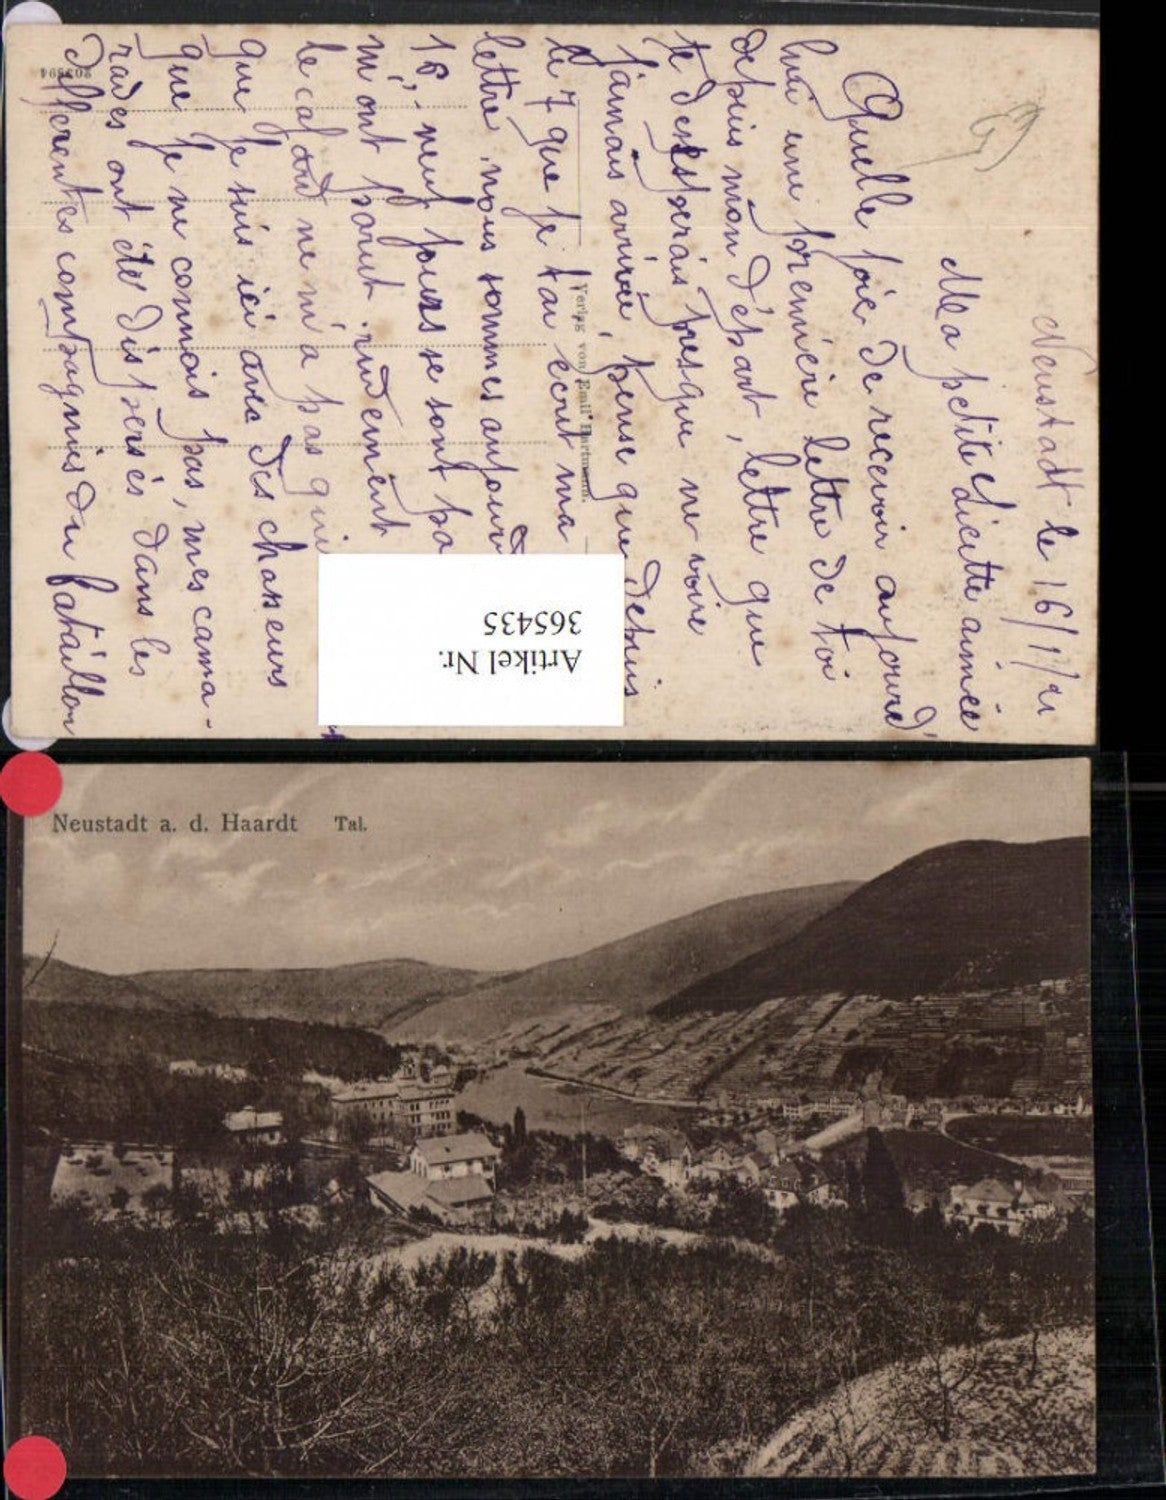 Neustadt le 16/1/21
Ma petite Licette aimée
Quelle joie de recevoir aujourd'
hui une première lettre de toi
depuis mon départ, lettre que
je desesperais presque ne voire
jamais arrivée, pense que depuis
le 7 que je t'ai ecrit ma
lettre, nous sommes aujourd
16, neuf jours se sont pa
m'ont parut rudement
le cafard ne m'a pas qui
que je suis ici avec des chasseurs
que je ne connois pas, mes cama-
rades ont été dispersés dans les
differentes compagnies du bataillon
Verlag von Emil Hartmann.
Artikel Nr.
365435
Neustadt a. d. Haardt Tal.